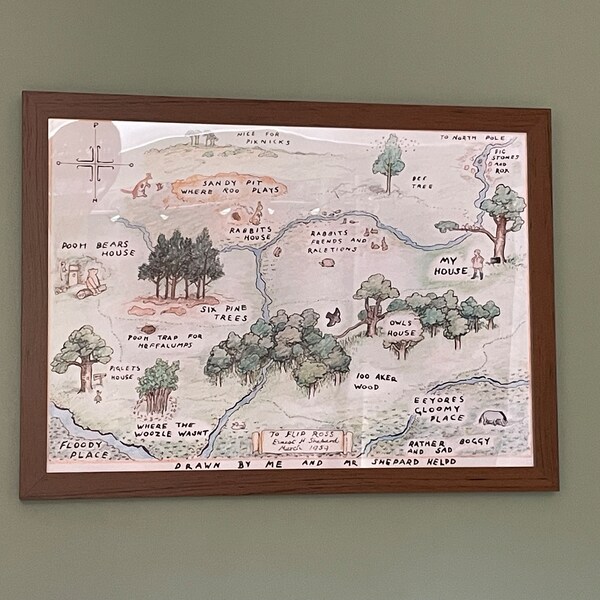 P
NICE FOR
PIKNICKS
TO NORTH POLE
BIG
STONES
AND
ROX
BEE
TREE
SANDY PIT
WHERE ROO PLAYS
RABBITS
HOUSE
RABBITS
FRENDS AND
RALETIONS
POOH BEARS
HOUSE
MY
HOUSE
SIX PINE
TREES
OWLS
HOUSE
POOH TRAP FOR
HEFFALUMPS
PIGLETS
HOUSE
100 AKER
WOOD
WHERE THE
WOOZLE WASNT
EEYORES
GLOOMY
PLACE
FLOODY
PLACE
TO FLIP ROSS
Ernest H Shepard
March 1959
RATHER BOGGY
AND SAD
DRAWN BY ME AND MR SHEPARD HELPD